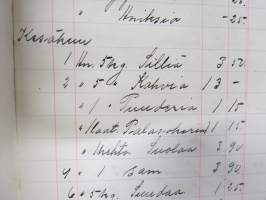 " Uniksia -25
Kesäkuu
1 Kn. 5 kg. Silliä 3 50
2 " 5 " Kahvia 13 -
" 1 " Puuderia 1 15
" 1 15
" Suolaa 3 90
4 " 1 sam. 3 90
6 " 5 kg. Suudaa 1 25